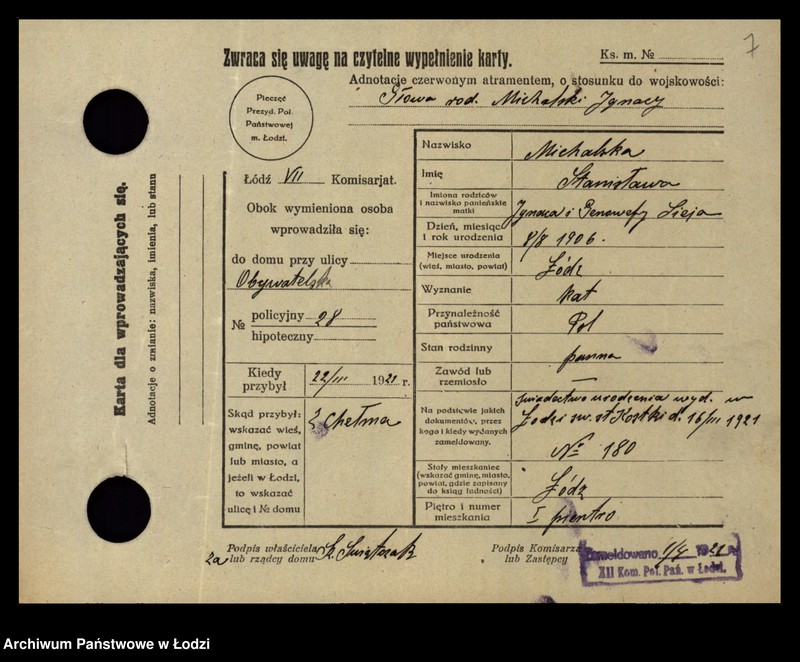 7
Zwraca się uwagę na czytelne wypełnienie karty.
Ks. m. №
Adnotacje czerwonym atramentem, o stosunku do wojskowości:
Głowa rod. Michalski Ignacy
Pieczęć
Prezyd. Pol.
Państwowej
m. Łodzi.
Karta dla wprowadzających się.
Adnotacje o zmianie: nazwiska, imienia, lub stanu
Łódź VII Komisarjat.
Obok wymieniona osoba
wprowadziła się:
do domu przy ulicy
Obywatelska
№ policyjny 28
hipoteczny
Kiedy przybył 22/III 1921 r.
Skąd przybył: z Chełma
wskazać wieś,
gminę, powiat
lub miasto, a
jeżeli w Łodzi,
to wskazać
ulicę i № domu
Nazwisko Michalska
Imię Stanisława
Imiona rodziców i nazwisko panieńskie matki Ignaca i Genowefy
Dzień, miesiąc i rok urodzenia 8/8 1906.
Miejsce urodzenia (wieś, miasto, powiat) Łódz
Wyznanie kat
Przynależność państwowa Pol
Stan rodzinny panna
Zawód lub rzemiosło —
Na podstawie jakich dokumentów, przez kogo i kiedy wydanych zameldowany. świadectwo urodzenia wyd. w
Łodzi św. st Kostki d. 16/III 1921
№ 180
Stały mieszkaniec (wskazać gminę, miasto, powiat, gdzie zapisany do ksiąg ludności) Łódz
Piętro i numer mieszkania I pientro
Podpis właściciela
za lub rządcy domu
Podpis Komisarza
lub Zastępcy
Zameldowano 1/4 1921 r.
XII Kom. Pol. Pań. w Łodzi.
Archiwum Państwowe w Łodzi